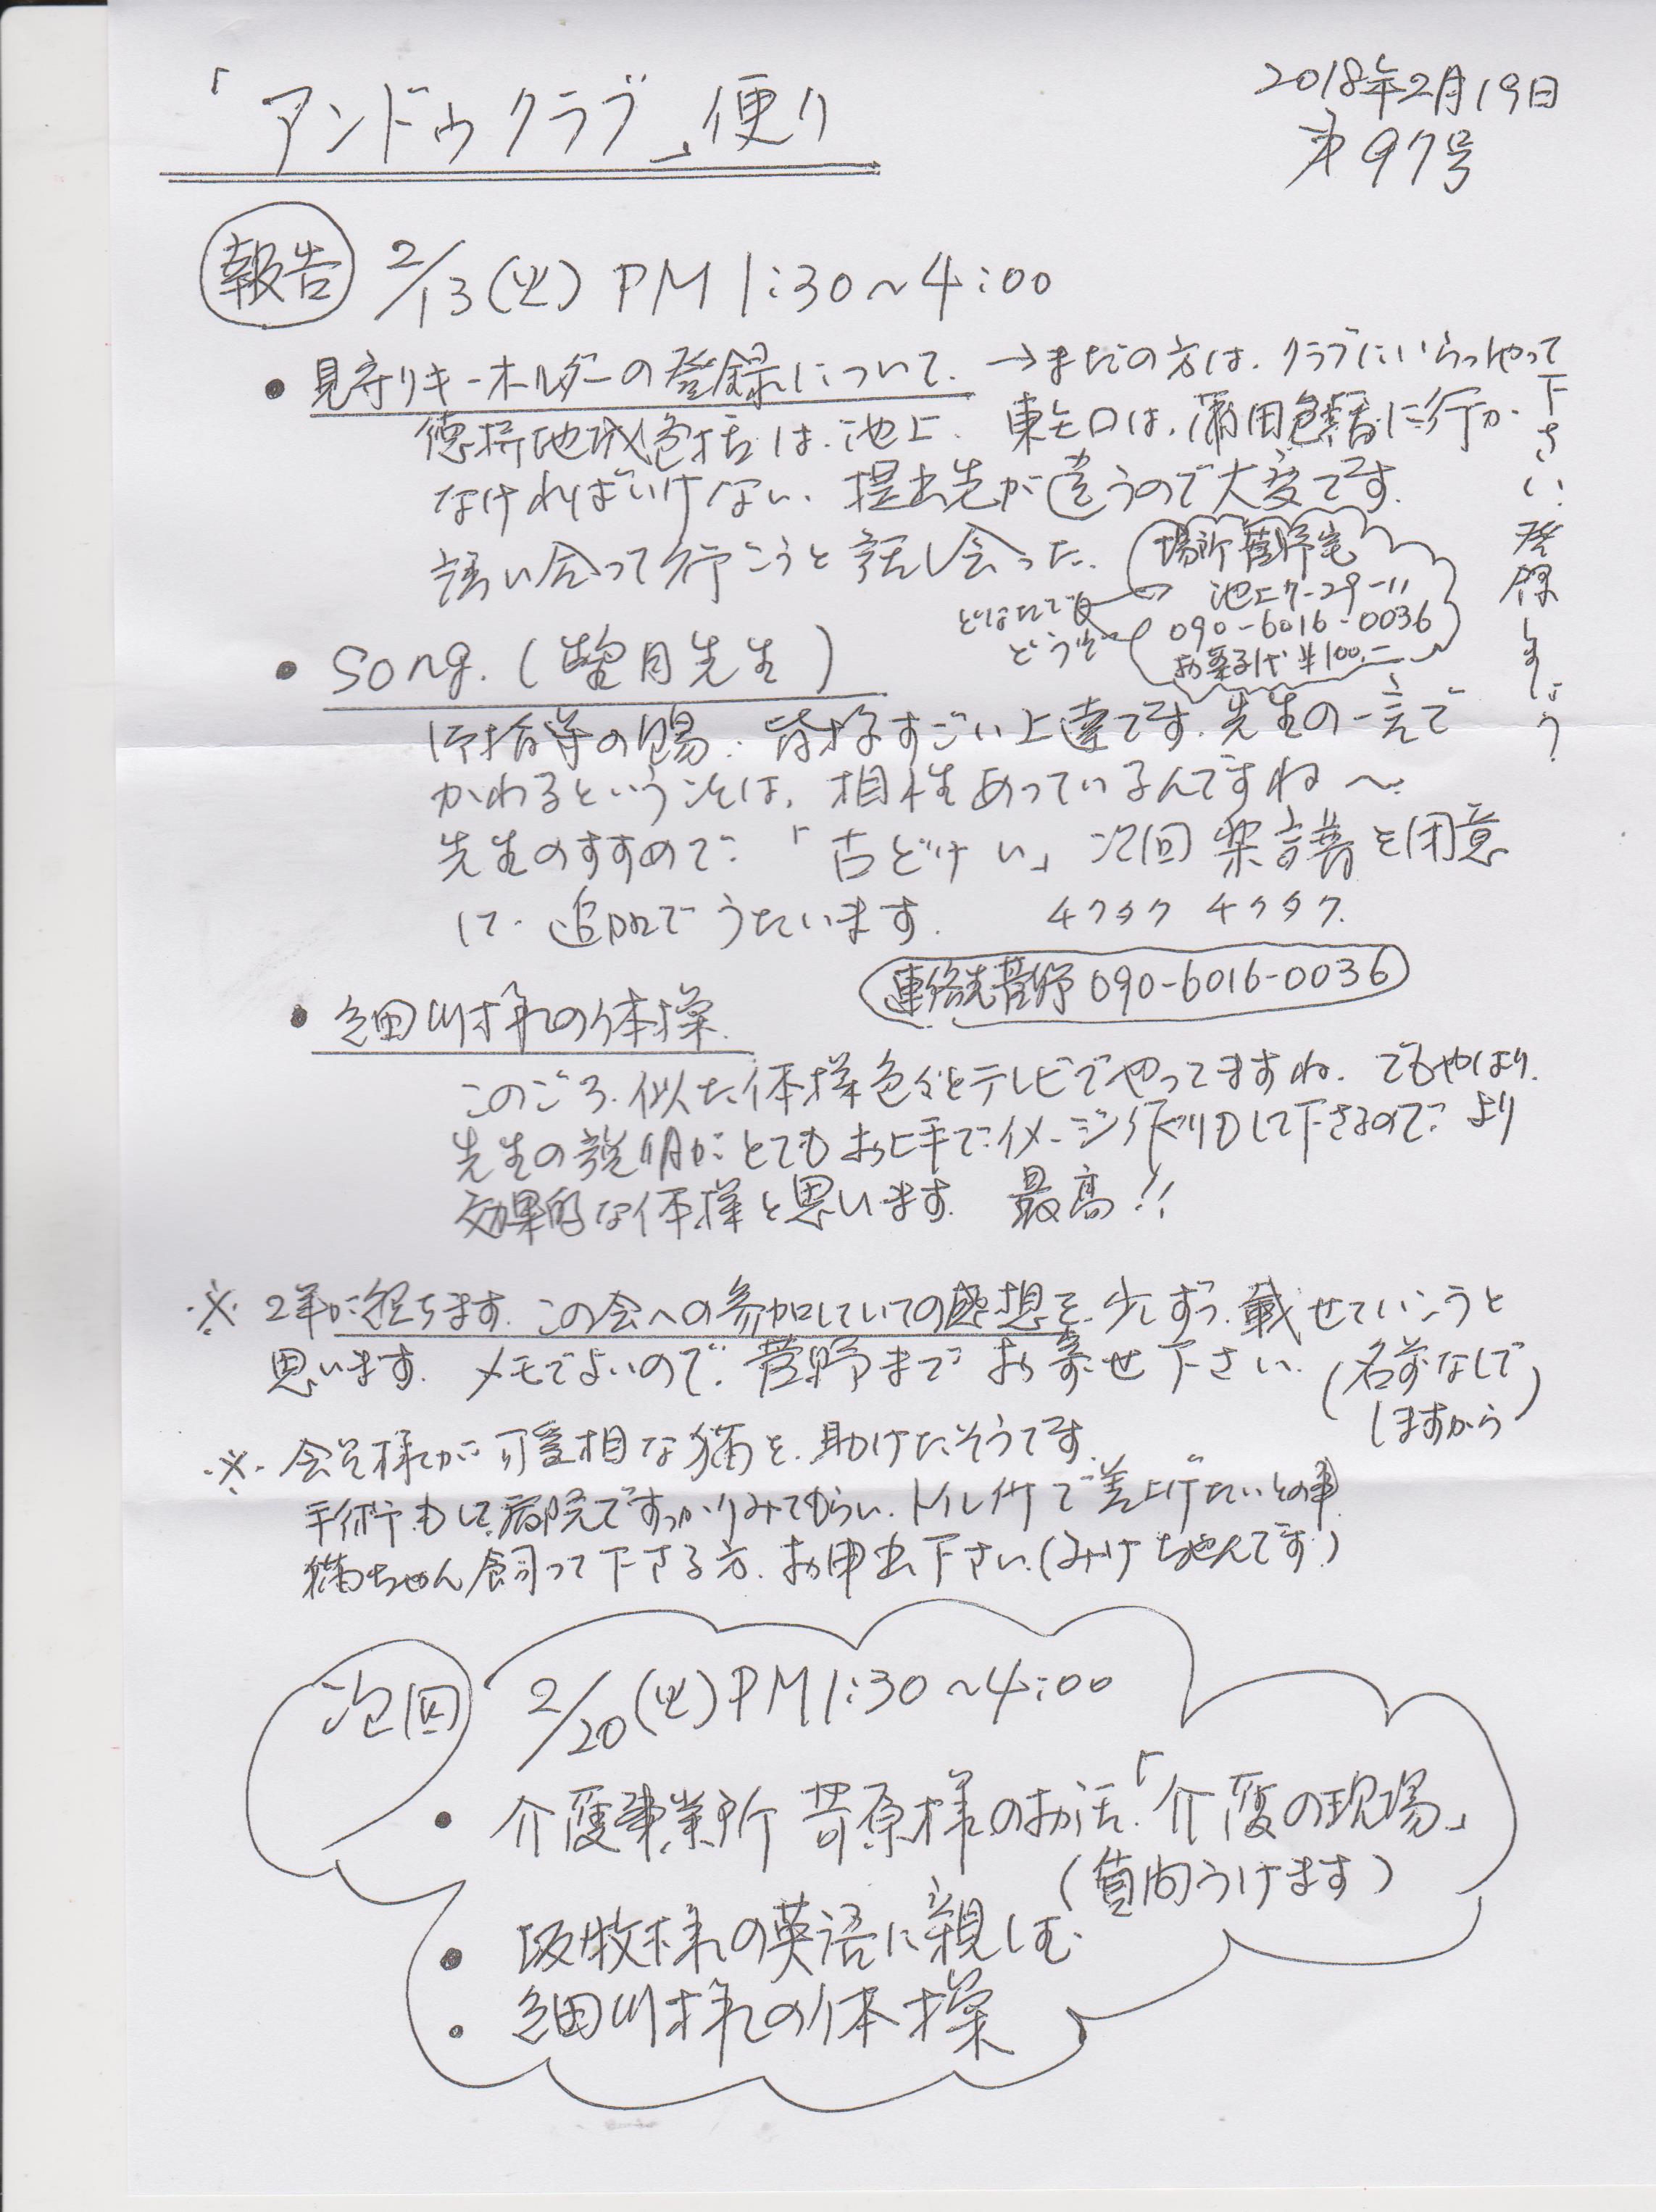 「アンドゥクラブ」便り
2018年2月19日
第97号
報告 2/13(火) PM 1:30~4:00
• 見守りキーホルダーの登録について. →まだの方は.クラブにいらっしゃって
下さい.登録しましょう
徳持地域包括は.池上. 東矢口は.蒲田包括に行か
なければいけない. 提出先が違うので大変です.
誘い合って行こうと話し会った.
場所菅野宅
池上7-29-11
090-6016-0036
お菓子代¥100.-
どなたでも
どうぞ
• Song. (望月先生)
御指導の賜. 皆様すごい上達です.先生の一言で
かわるということは. 相性あっているんですね~.
先生のすすめで. 「古どけい」次回楽譜を用意
して. 追加でうたいます. チクタク チクタク.
連絡先菅野 090-6016-0036
• 細川様の体操.
このごろ.似た体操色々とテレビでやってますね. でもやはり.
先生の説明がとてもお上手で.イメージ作りもして下さるので. より
効果的な体操と思います. 最高!!
※ 2年が経ちます.この会への参加していての感想を.少しずつ.載せていこうと
思います. メモでよいので.菅野までお寄せ下さい. (名前なしで
しますから)
※ 会員様が可愛相な猫を.助けたそうです.
手術もして.病院ですっかりみてもらい.トイレ付で差上げたいとの事
猫ちゃん飼って下さる方.お申出下さい.(みけちゃんです)
次回 2/20(火)PM1:30~4:00
• 介護事業所 苛原様のお話.「介護の現場.」
(質問うけます)
• 坂牧様の英語に親しむ.
• 細川様の体操